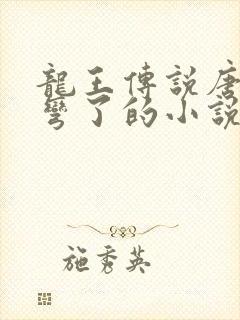 龍王傳說唐
彎了的小說
施秀英